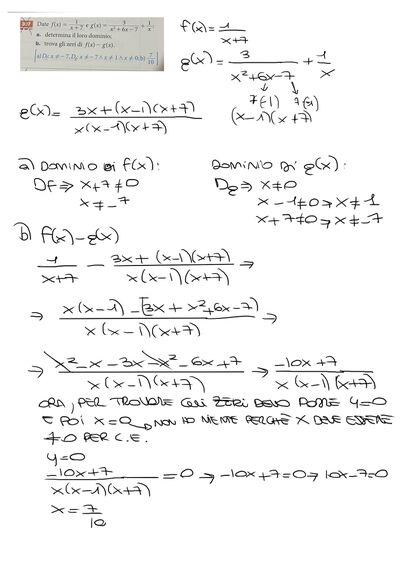 Date f(x) = 1/(x+7) e g(x) = 3/(x²+6x−7) + 1/x
a. determina il loro dominio;
b. trova gli zeri di f(x) − g(x).
f(x) = 1/(x+7)
g(x) = 3/(x²+6x−7) + 1/x
7(-1) 7(+1)
(x−1)(x+7)
g(x) = (3x + (x−1)(x+7))/(x(x−1)(x+7))
a) DOMINIO DI f(x):
Df ⇒ x+7≠0
x≠−7
DOMINIO DI g(x):
Dg ⇒ x≠0
x−1≠0 → x≠1
x+7≠0 → x≠−7
b) f(x)−g(x)
1/(x+7) − (3x + (x−1)(x+7))/(x(x−1)(x+7)) →
→ (x(x−1) −[3x + x²+6x−7])/(x(x−1)(x+7)) →
→ (x² −x −3x −x² −6x+7)/(x(x−1)(x+7)) → (−10x+7)/(x(x−1)(x+7))
ORA, PER TROVARE GLI ZERI DEVO PORRE y=0
E POI x=0 → NON HO NIENTE PERCHÈ X DEVE ESSERE
≠0 PER C.E.
y=0
(−10x+7)/(x(x−1)(x+7)) = 0 → −10x+7=0 → 10x−7=0
x = 7/10